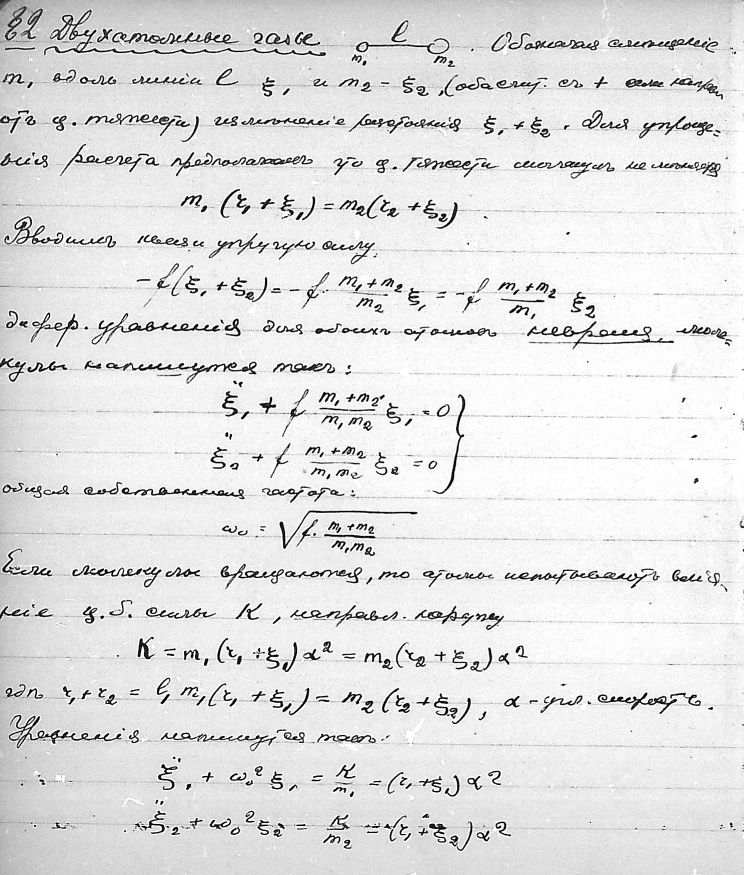 §2 Двухатомные газы m₁ l m₂. Обозначая смещеніе
m₁ вдоль линіи l ξ₁ и m₂ – ξ₂, (оба счит. съ + если направ
отъ ц. тяжести) измѣненіе разстоянія ξ₁ + ξ₂. Для упроще=
нія расчета предполагаемъ что ц. тяжести молекулъ не
m₁ (r₁ + ξ₁) = m₂ (r₂ + ξ₂).
Вводимъ упругую силу.
-f(ξ₁ + ξ₂) = -f · (m₁ + m₂)/m₂ ξ₁ = -f (m₁ + m₂)/m₁ ξ₂
дифер. уравненія для обоихъ атомовъ моле=
кулы напишутся такъ:
ξ̈₁ + f (m₁ + m₂)/(m₁ m₂) ξ₁ = 0 }
ξ̈₂ + f (m₁ + m₂)/(m₁ m₂) ξ₂ = 0
общая собственная частота:
ω₀ = √(f · (m₁ + m₂)/(m₁ m₂))
Если молекулы вращаются, то атомы испытываютъ влія-
ніе ц.б. силы K, направл. наружу
K = m₁ (r₁ + ξ₁) α² = m₂ (r₂ + ξ₂) α²
гдѣ r₁ + r₂ = l, m₁ (r₁ + ξ₁) = m₂ (r₂ + ξ₂), α – угл. скорость.
Уравненія напишутся такъ:
ξ̈₁ + ω₀² ξ₁ = K/m₁ = (r₁ + ξ₁) α²
ξ̈₂ + ω₀² ξ₂ = K/m₂ = (r₁ + ξ₂) α²